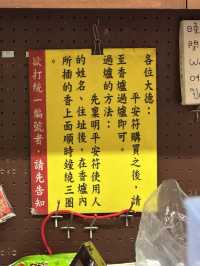 各位大德：
平安符購買之後，請
至香爐過爐即可。
過爐的方法：
先稟明平安符使用人
的姓名、住址後，在香爐內
所插的香上面順時鐘繞三圈
。
欲打統一編號者，請先告知
晚間